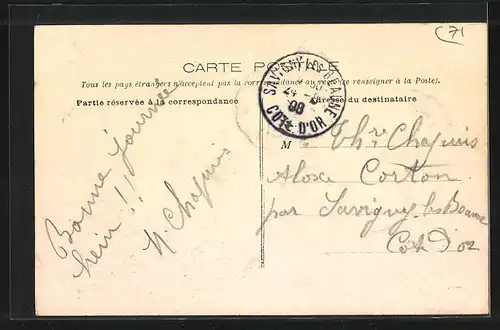 C 71
CARTE POSTALE
Tous les pays étrangers n'acceptent pas la correspondance au recto (se renseigner à la Poste).
Partie réservée à la correspondance
Adresse du destinataire
SAVIGNY-LES-BEAUNE
24 -
08
COTE D'OR
Bonne journée
hein !!
H Chapuis
M
Th^re Chapuis
Aloxe Corton
par Savigny les Beaune
Côte d'or